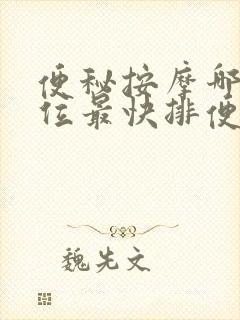 便秘按摩哪
位最快排便
魏先文